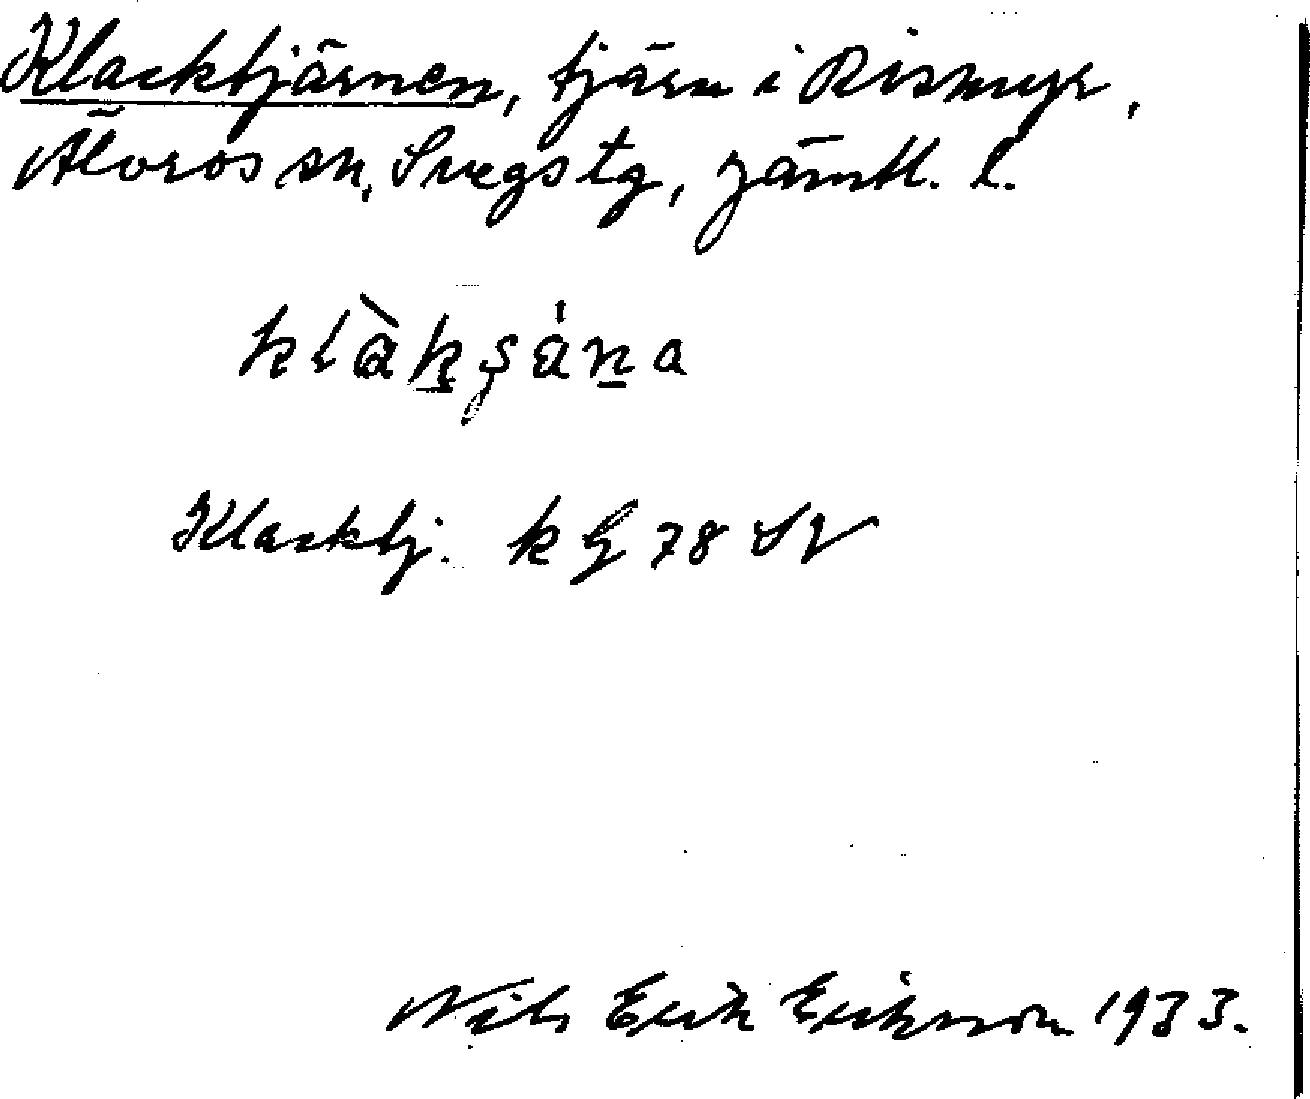 Klacktjärnen, tjärn i Rismyr,
Älvros sn, Svegs tg, Jämtl. l.
klàk̠ʂán̠a
Klacktj. k G 78 SV
Nils Erik Eriksson 1933.